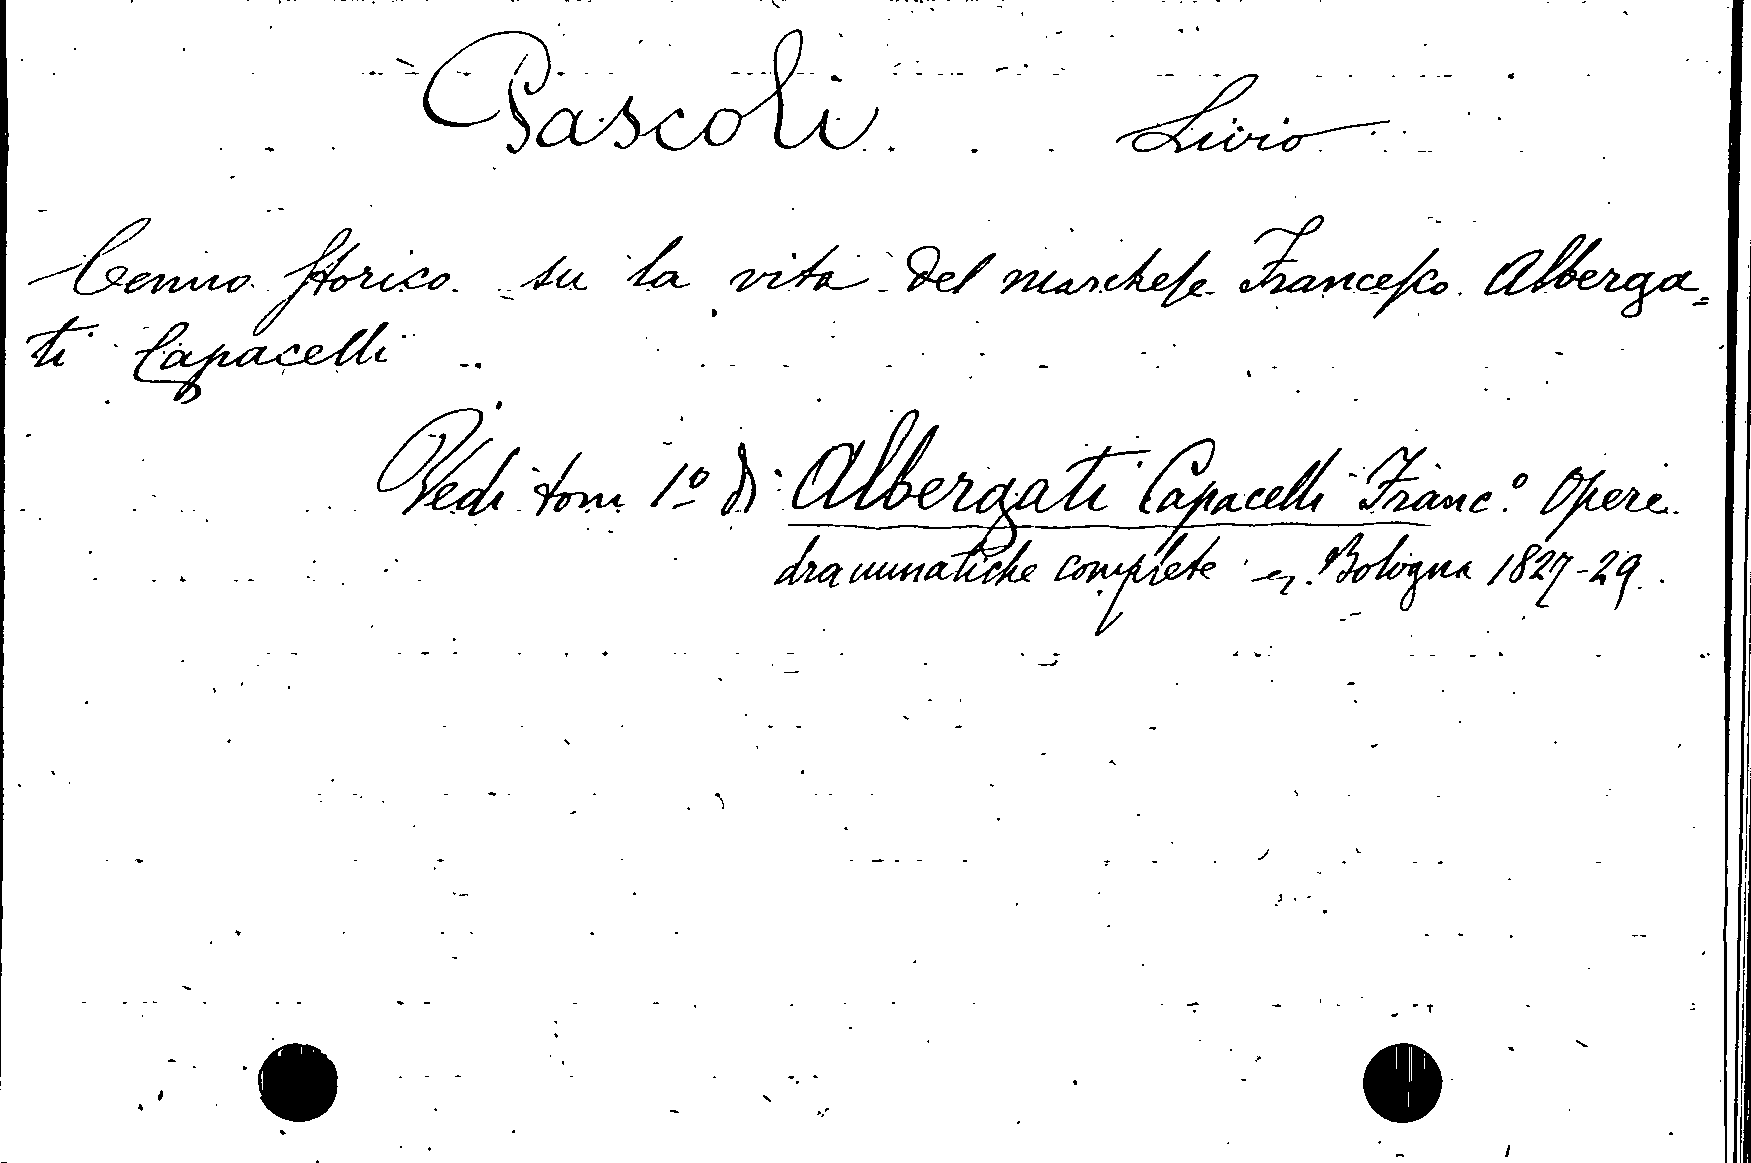 Pascoli Livio
Cenno storico su la vita del marchese Francesco Alberga=
ti Capacelli
Vedi tom 1º di Albergati Capacelli Franc.º Opere
drammatiche complete Bologna 1827-29.